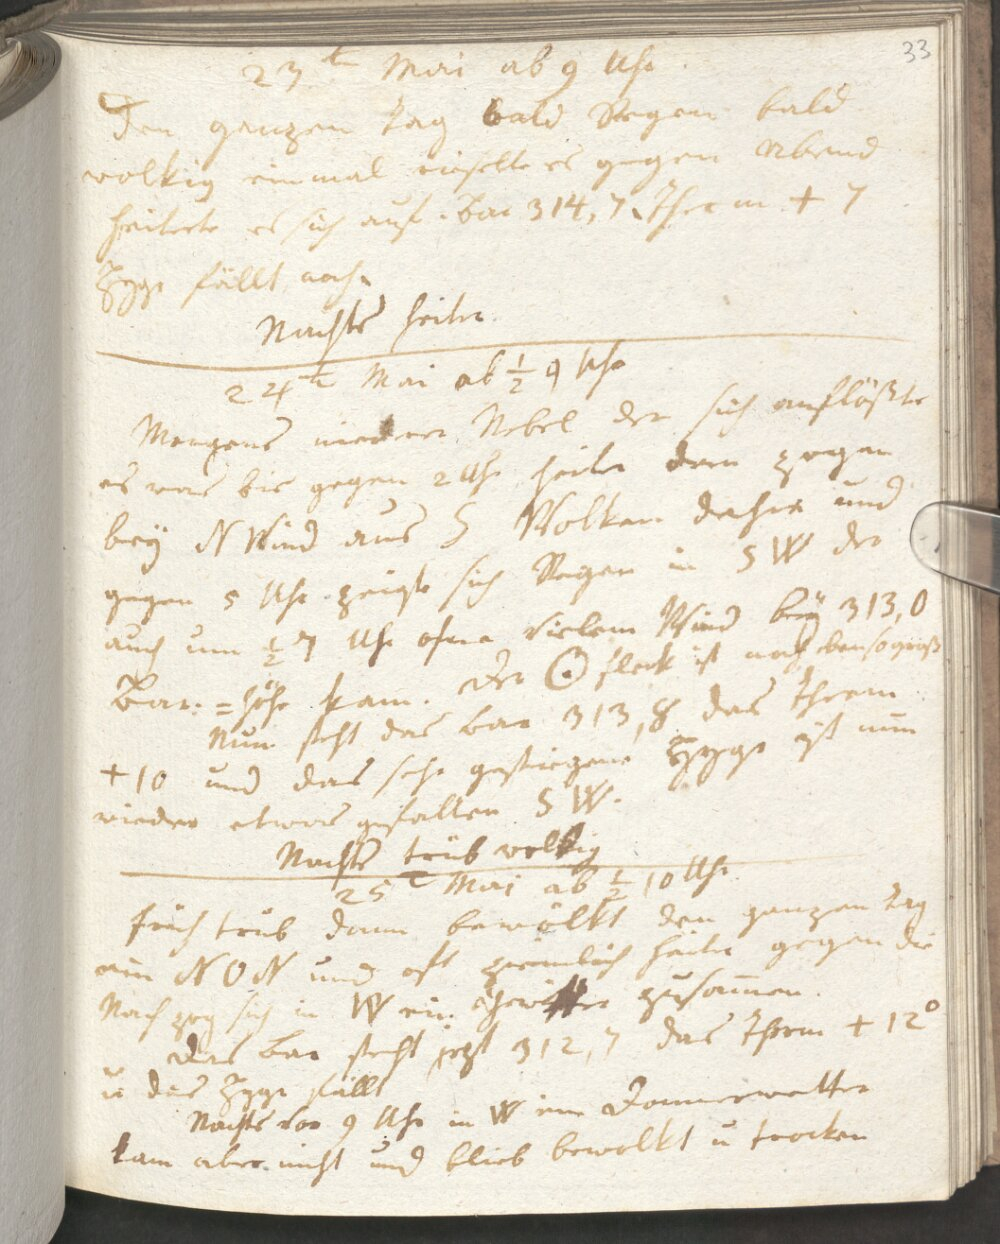 33
23t Mai ab 9 Uhr.
Den ganzen Tag bald Regen bald
wolkig einmal rieselte es gegen Abend
heiterte es sich auf. Bar 314,7. Therm + 7
Hygr fällt noch.
Nachts heiter.
24t Mai ab ½ 9 Uhr
Morgens niederer Nebel der sich auflößte
es war bis gegen 2 Uhr heiter dann zogen
bey N Wind aus S Wolken daher und
gegen 5 Uhr zeigte sich Regen in SW der
auch um ½ 7 Uhr ohne vielem Wind bey 313,0
Bar.=höhe kam. Der ☉ fleck ist noch ebenso groß
Nun steht das Bar 313,8 das Therm
+10 und das sehr gestiegene Hygr ist nun
wieder etwas gefallen SW.
Nachts trüb wolkig
25t Mai ab ½ 10 Uhr.
früh trüb dann bewölkt den ganzen Tag
ein NON und oft ziemlich heiter gegen die
Nacht zog sich in W ein Gewitter zusam̅en.
Das Bar steht jezt 312,7 das Therm + 12°
u das Hygr fällt
Nachts vor 9 Uhr in W ein Donnerwetter
kam aber nicht und blieb bewolkt u trocken